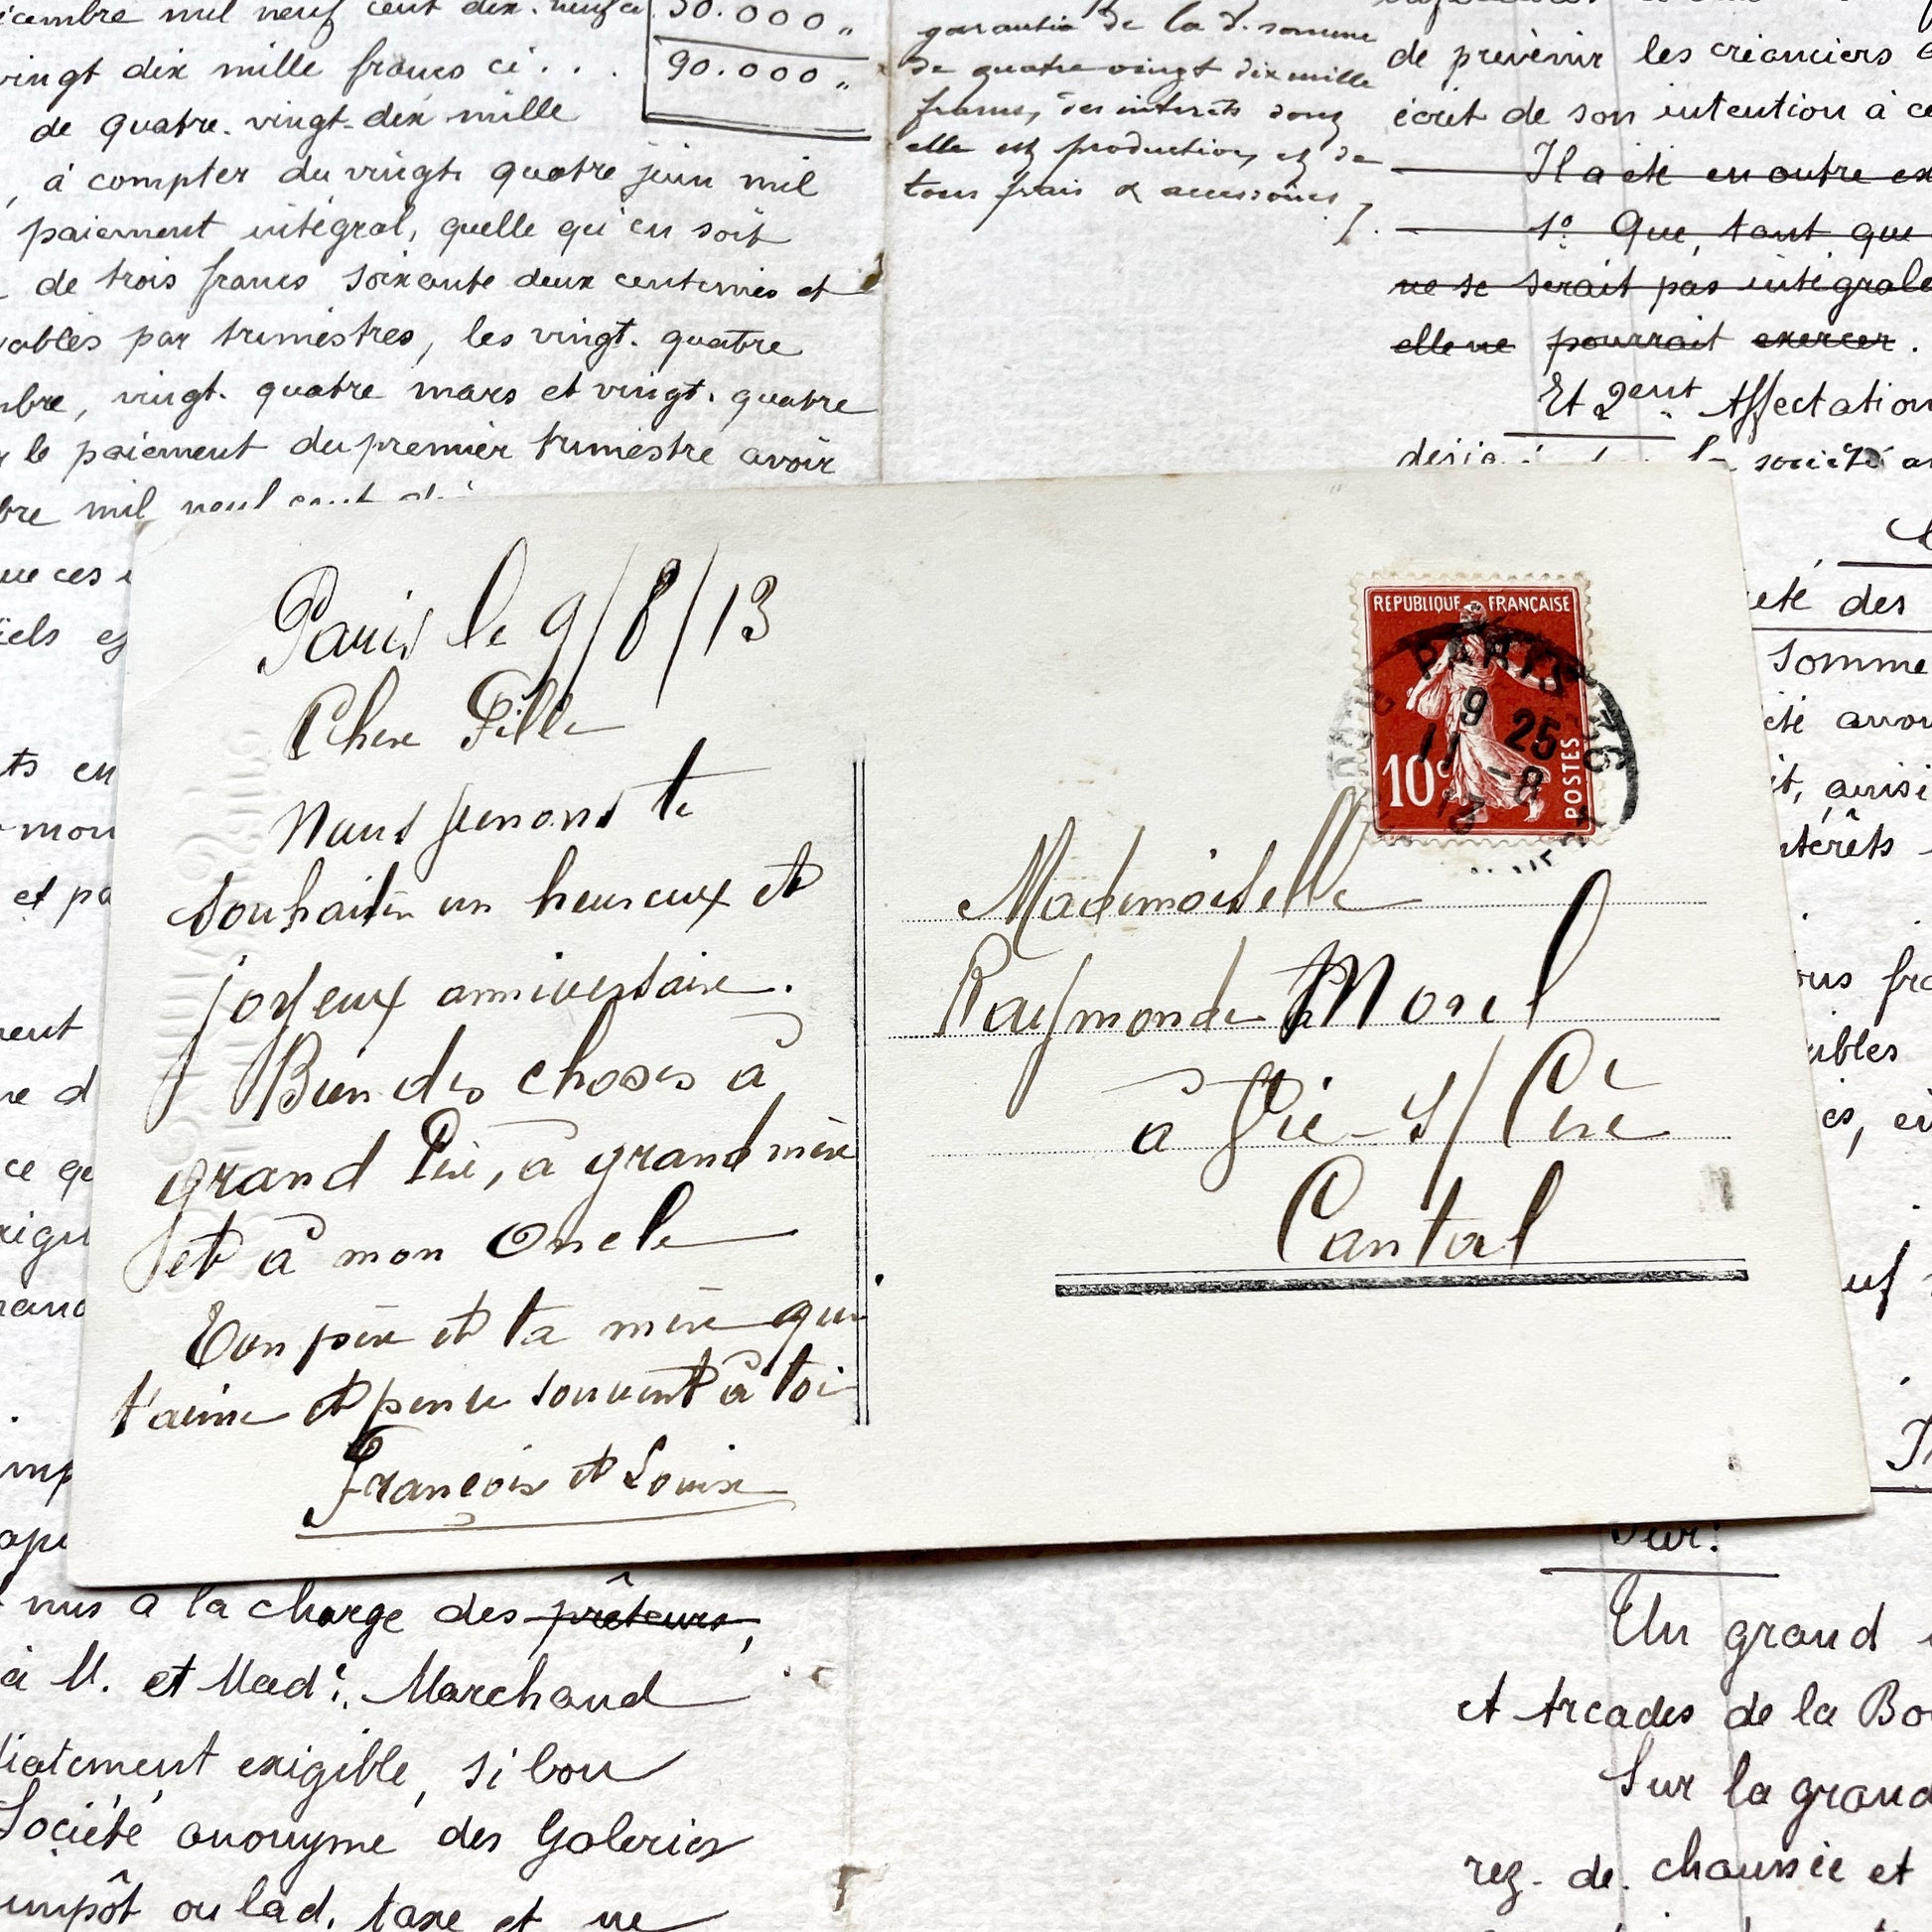 cembre mil neuf cent dix-neuf ci
50.000 "
vingt dix mille francs ci . . .
90.000 "
de quatre-vingt-dix mille
, à compter du vingt quatre juin mil
paiement intégral, quelle qu'en soit
de trois francs soixante deux centimes et
vables par trimestres, les vingt-quatre
mbre, vingt-quatre mars et vingt-quatre
le paiement du premier trimestre avoir
bre mil neuf cent
garantie de la d. somme
de quatre vingt dix mille
francs, des intérêts dont
elle est production, et de
tous frais & accessoires /.
de prévenir les créanciers
écrit de son intention à ce
Il a été en outre ex
1° Que, tant que
ne se serait pas intégrale
elle ne pourrait exercer.
Et 2ent Affectation
société an
Paris le 9/8/13
Chere Fille
Nous venons te
souhaiter un heureux et
joyeux anniversaire.
Bien des choses à
grand Père, à grand mère
et à mon Oncle
Ton père et ta mère qui
t'aime et pense souvent à toi
François et Louise
REPUBLIQUE FRANÇAISE
10c
POSTES
PARIS
9
11 25
-8
13
Mademoiselle
Raymonde Morel
à Vic-s/Cère
Cantal
ue ces
iels et
ts en
mon
et pa
ment
re d
ce qe
xigu
rand
imp
eté des
somme
été avon
it, ainsi
ntérêts
ous fra
ibles
es, en
uf
mis à la charge des prêteurs,
à M. et Made. Marchand
diatement exigible, si bon
Société anonyme des Galeries
impôt ou lad. taxe et ne
Sur:
Un grand
et Arcades de la Bo
Sur la grand
rez-de-chaussée et